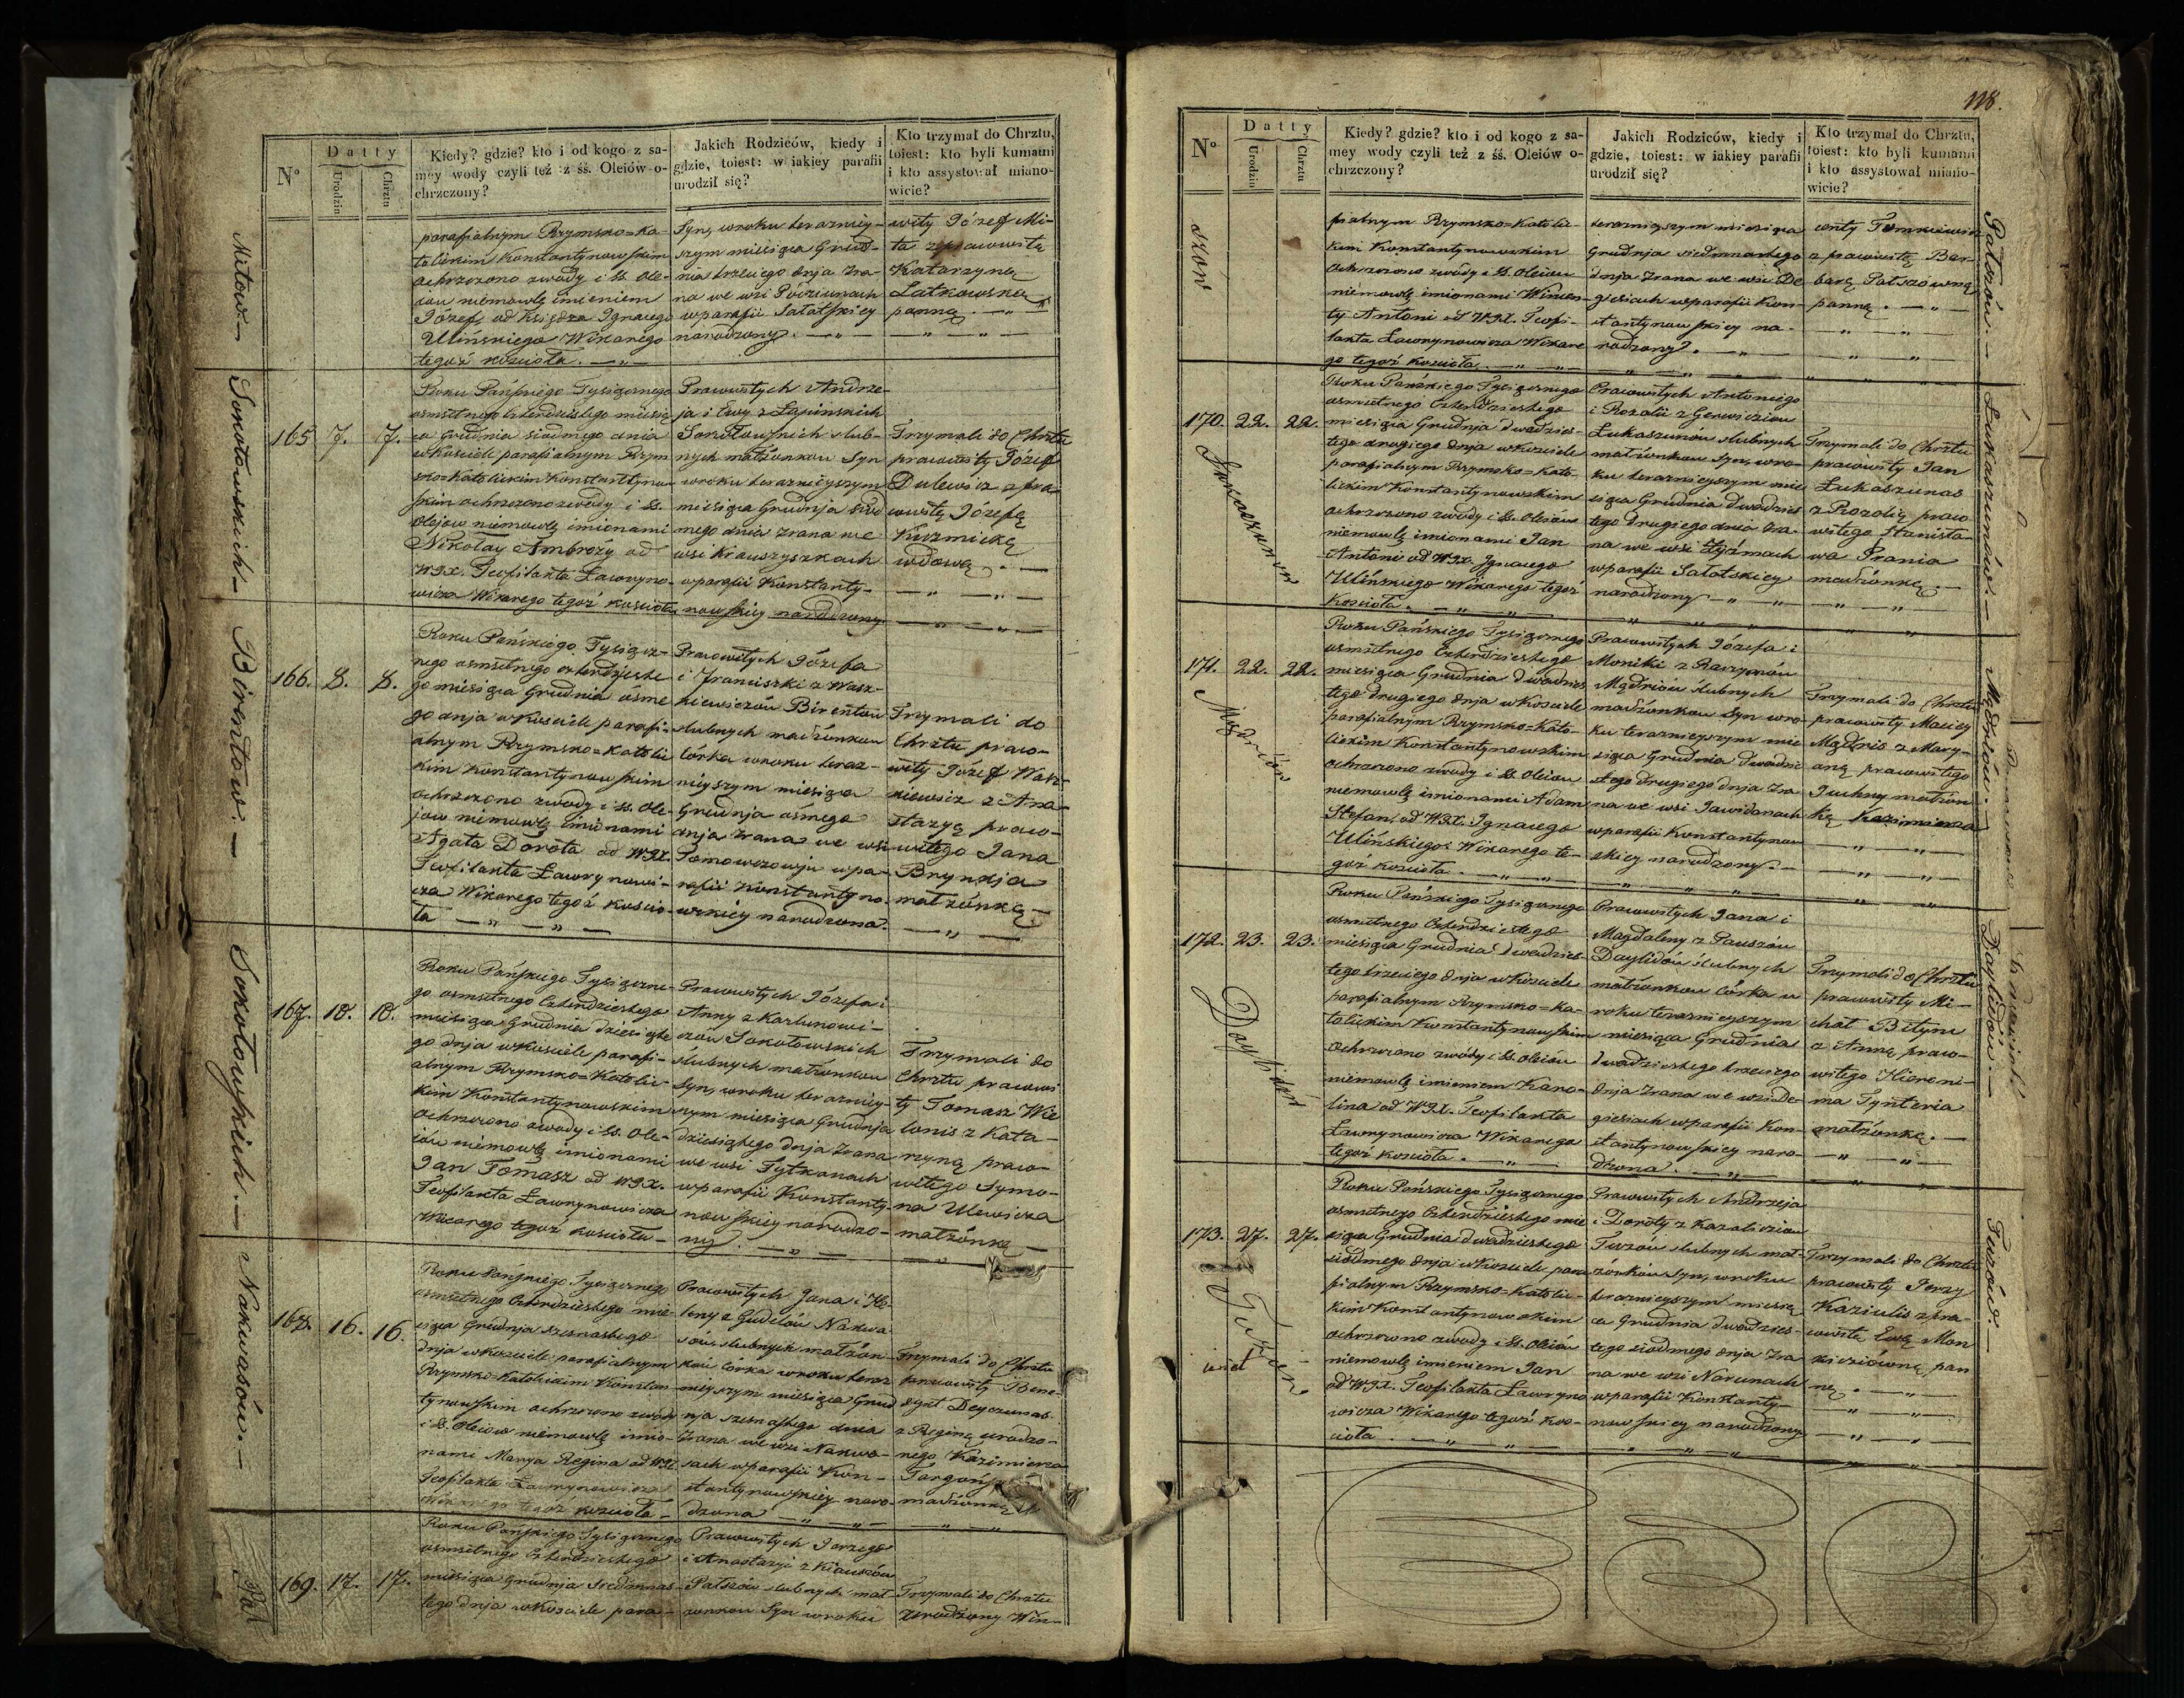 N°
Datty
Urodzin
Chrztu
Kiedy? gdzie? kto i od kogo z sa-
mey wody czyli też z śś. Oleiów o-
chrzczony?
Jakich Rodziców, kiedy i
gdzie, toiest: w iakiey parafii
urodził się?
Kto trzymał do Chrztu,
toiest: kto byli kumami
i kto assystował miano-
wicie?
Mitow
parafialnym Rzymsko=Ka-
tolickim Konstantynowskim
ochrzczono zwody i SS. Ole-
iow niemowlę imieniem
Józef, od Księdza Ignacego
Ulińskiego Wikarego
tegoż kościoła
Syn, wroku teraźniey-
szym miesiąca Grud-
nia trzeciego dnia zra-
na we wsi Podziunach
w parafii Sałatskiey
narodzony.
wity Józef Mi-
ta z pracowitą
Katarzyną
Latkowską
panną.
Sokołowskich
165 7. 7.
Roku Pańskiego Tysiącznego
osmsetnego czterdziestego miesią
ca Grudnia siodmego dnia
w kosciele parafialnym Rzym
sko=Katolickim Konstantynow
skim ochrzczono zwody i SS.
olejow niemowlę imionami
Nikołay Ambroży od
WJX. Teofilakta Ławryno-
wicza Wikarego tegoż kościoła
Pracowitych Andrze-
ja i Ewy z Łapinskich
Sokołowskich slub-
nych małżonkow Syn
wroku teraznieyszym
miesiąca Grudnja siod
mego dnia zrana we
wsi Krauszyszkach
w parafii Konstanty-
nowskiey narodzony
Trzymali do Chrztu
pracowity Józef
Dulewicz z pra-
cowitą Józefą
Kuzmicką
wdową.
Birentow.
166. 8. 8.
Roku Pańskiego Tysiącz-
nego osmsetnego czterdzieste
go miesiąca Grudnia ósme
go dnja w Kosciele parafi-
alnym Rzymsko=Katolic
kim Konstantynowskim
ochrzczono zwody i SS. Ole-
jow niemowlę imionami
Agata Dorota od WJX.
Teofilakta Ławrynowi-
cza Wikarego tegoż koscio-
ła
Pracowitych Józefa
i Franciszki z Wasz-
kiewiczow Birentow
slubnych małżonkow
Córka wroku teraz-
nieyszym miesiąca
Grudnja ósmego
dnja zrana we wsi
w pa-
rafii Konstantyno-
wskiey narodzona.
Trzymali do
Chrztu praco-
wity Józef Wasz-
kiewicz z Ana-
stazyą praco-
witego Jana
Brynkja
małżonką
Sokołowskich.
167. 10. 10.
Roku Pańskiego Tysiączne-
go osmsetnego Czterdziestego
miesiąca Grudnia dziesiąte
go dnja w kosciele parafi-
alnym Rzymsko=Katolic-
kim Konstantynowskim
ochrzczono zwody i SS. Ole-
iów niemowlę imionami
Jan Tomasz od WJX.
Teofilakta Ławrynowicza
Wikarego tegoż kościoła
Pracowitych Józefa i
Anny z Karlunowi-
czow Sokołowskich
ślubnych małżonkow
Syn, wroku teraźniey-
szym miesiąca Grudnja
dziesiątego dnja zrana
we wsi Tytkanach
w parafii Konstanty-
nowskiey narodzo-
ny.
Trzymali do
Chrztu pracowi
ty Tomasz Wie
lonis z Kata-
rzyną praco-
witego Symo-
na Ulewicza
małżonką
Nakwasów.
168. 16. 16.
Roku Pańskiego Tysiącznego
osmsetnego Czterdziestego mie-
siąca Grudnja szesnastego
dnja w kosciele parafialnym
Rzymsko-Katolickim Konstan-
tynowskim ochrzczono zwody
i SS. Oleiow niemowlę imio-
nami Marya Regina od WJX.
Teofilakta Ławrynowicza
Wikarego tegoż kościoła
Pracowitych Jana i He-
leny z Gudelów Nakwa
sów slubnych małżon-
kow Córka wroku teraz
nieyszym miesiąca Grud
nja szesnastego dnia
zrana we wsi Nakwa-
sach w parafii Kon-
stantynowskiey naro-
dzona
Trzymali do Chrztu
pracowity Bene-
dykt Deyczunas
z Reginą urodzo-
nego Kazimierza
małżonką
Pal
169. 17. 17.
Roku Pańskiego Tysiącznego
osmsetnego Czterdziestego
miesiąca Grudnja siedmnas-
tego dnja w Kosciele para-
Pracowitych Jerzego
i Anastazyi z Kiauszow
Palszow slubnych mał-
żonkow Syn wroku
Trzymali do Chrztu
Urodzony Win-
118.
N°
Datty
Urodzin
Chrztu
Kiedy? gdzie? kto i od kogo z sa-
mey wody czyli też z śś. Oleiów o-
chrzczony?
Jakich Rodziców, kiedy i
gdzie, toiest: w iakiey parafii
urodził się?
Kto trzymał do Chrztu,
toiest: kto byli kumami
i kto assystował miano-
wicie?
szow
Palszów.
fialnym Rzymsko=Katolic-
kim Konstantynowskim
ochrzczono zwódy i SS. Oleiow
niemowlę imionami Wincen-
ty Antoni od WJX. Teofi-
lakta Ławrynowicza Wikare
go tegoż kościoła
teraznieyszym miesiąca
Grudnja siedmnastego
dnja zrana we wsi De-
giesiach w parafii Kon-
stantynowskiey na-
rodzony.
centy Tomkiewicz
z pracowitą Bar-
barą Palszówną
panną.
Łukaszunów.
170. 22. 22.
Roku Pańskiego Tysiącznego
osmsetnego Czterdziestego
miesiąca Grudnja dwadzies-
tego drugiego dnja w kosciele
parafialnym Rzymsko=Kato-
lickim Konstantynowskim
ochrzczono zwody i SS. Oleiow
niemowlę imionami Jan
Antoni od WJX. Ignacego
Ulińskiego Wikarego tegoż
Kościoła.
Pracowitych Antoniego
i Rozalii z Gerwiczow
Łukaszunów slubnych
małżonkow Syn, wro-
ku teraznieyszym mie
siąca Grudnia dwadzies
tego drugiego dnia zra-
na we wsi Żyżmach
w parafii Sałatskiey
narodzony
Trzymali do Chrztu
pracowity Jan
Łukaszunas
z Rozalią praco
witego Stanisła-
wa Prania
małżonką.
Mądriów.
171. 22. 22.
Roku Pańskiego Tysiącznego
osmsetnego Czterdziestego
miesiąca Grudnia dwadzies
tego drugiego dnja w kosciele
parafialnym Rzymsko-Kato-
lickim Konstantynowskim
ochrzczono zwody i SS. Oleiow
niemowlę imionami Adam
Stefan, od WJX. Ignacego
Ulińskiego Wikarego te-
goż kościoła.
Pracowitych Józefa i
Moniki z Raczynów
Mądriów ślubnych
małżonkow Syn wro
ku teraznieyszym mie
siąca Grudnia dwadzie
stego drugiego dnja zra
na we wsi Jawidanach
w parafii Konstantynow
skiey narodzony.
Trzymali do Chrztu
pracowity Maciey
Mądris z Mary-
anną pracowitego
Juchny małżon
ką Kazimierza
Daylidów.
172. 23. 23.
Roku Pańskiego Tysiącznego
osmsetnego Czterdziestego
miesiąca Grudnia dwadzies-
tego trzeciego dnja w kościele
parafialnym Rzymsko-Ka-
tolickim Konstantynowskim
ochrzczono zwódy i SS. Oleiów
niemowlę imieniem Karo-
lina od WJX. Teofilakta
Ławrynowicza Wikarego
tegoż kościoła.
Pracowitych Jana i
Magdaleny z Pauszów
Daylidów ślubnych
małżonkow Córka w
roku teraznieyszym
miesiąca Grudnia
dwadziestego trzeciego
dnja zrana we wsi De-
giesiach w parafii Kon-
stantynowskiey naro-
dzona.
Trzymali do Chrztu
pracowity Mi-
chał Bitym
z Anną praco-
witego Hieroni-
ma Tynteria
małżonką.
Daylidow
Turzów.
173. 27. 27.
Roku Pańskiego Tysiącznego
osmsetnego Czterdziestego mie
siąca Grudnia dwadziestego
siodmego dnja w kościele para
fialnym Rzymsko-Katolic-
kim Konstantynowskim
ochrzczono zwody i SS. Oleiów
niemowlę imieniem Jan
od WJX. Teofilakta Ławryno
wicza Wikarego tegoż koś-
cioła.
Pracowitych Andrzeja
i Doroty z Kazaliciow
Turzów slubnych mał-
żonków Syn, wroku
teraznieyszym miesią
ca Grudnia dwadzies-
tego siodmego dnja zra
na we wsi Narunach
w parafii Konstanty-
nowskiey narodzony
Trzymali do Chrztu
pracowity Jerzy
Kaziulis z pra-
cowitą Ewą Mon
kiewiczówną pan
ną.